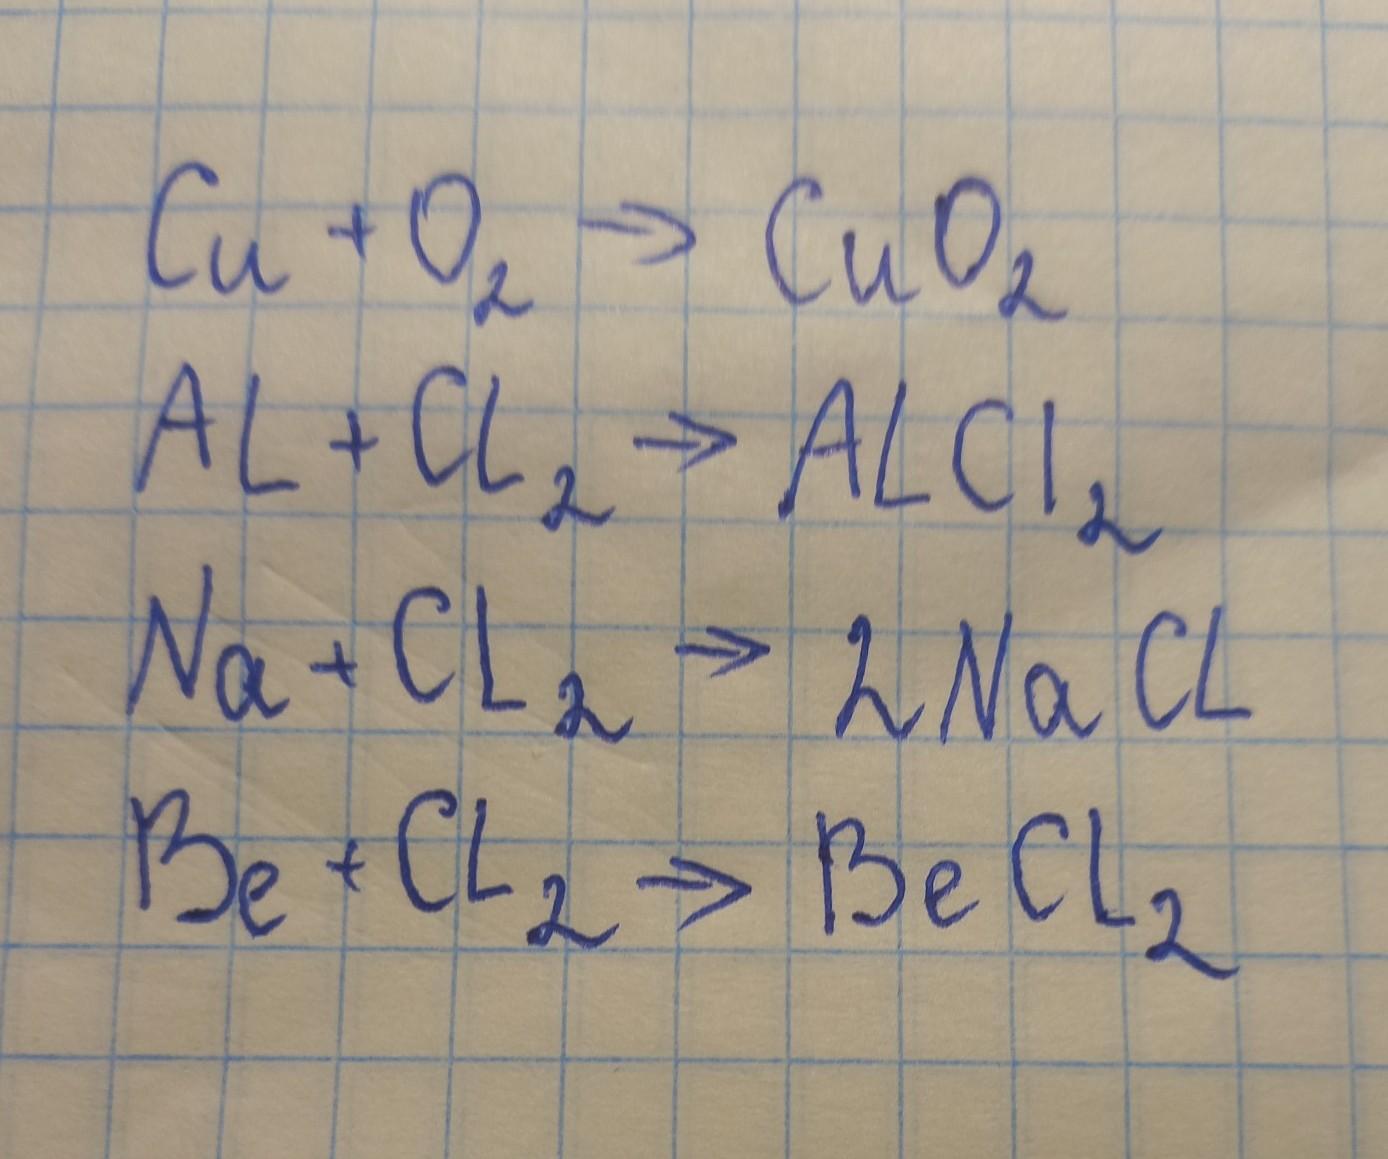 Cu + O₂ → CuO₂
AL + CL₂ → ALCl₂
Na + CL₂ → 2NaCL
Be + CL₂ → BeCL₂